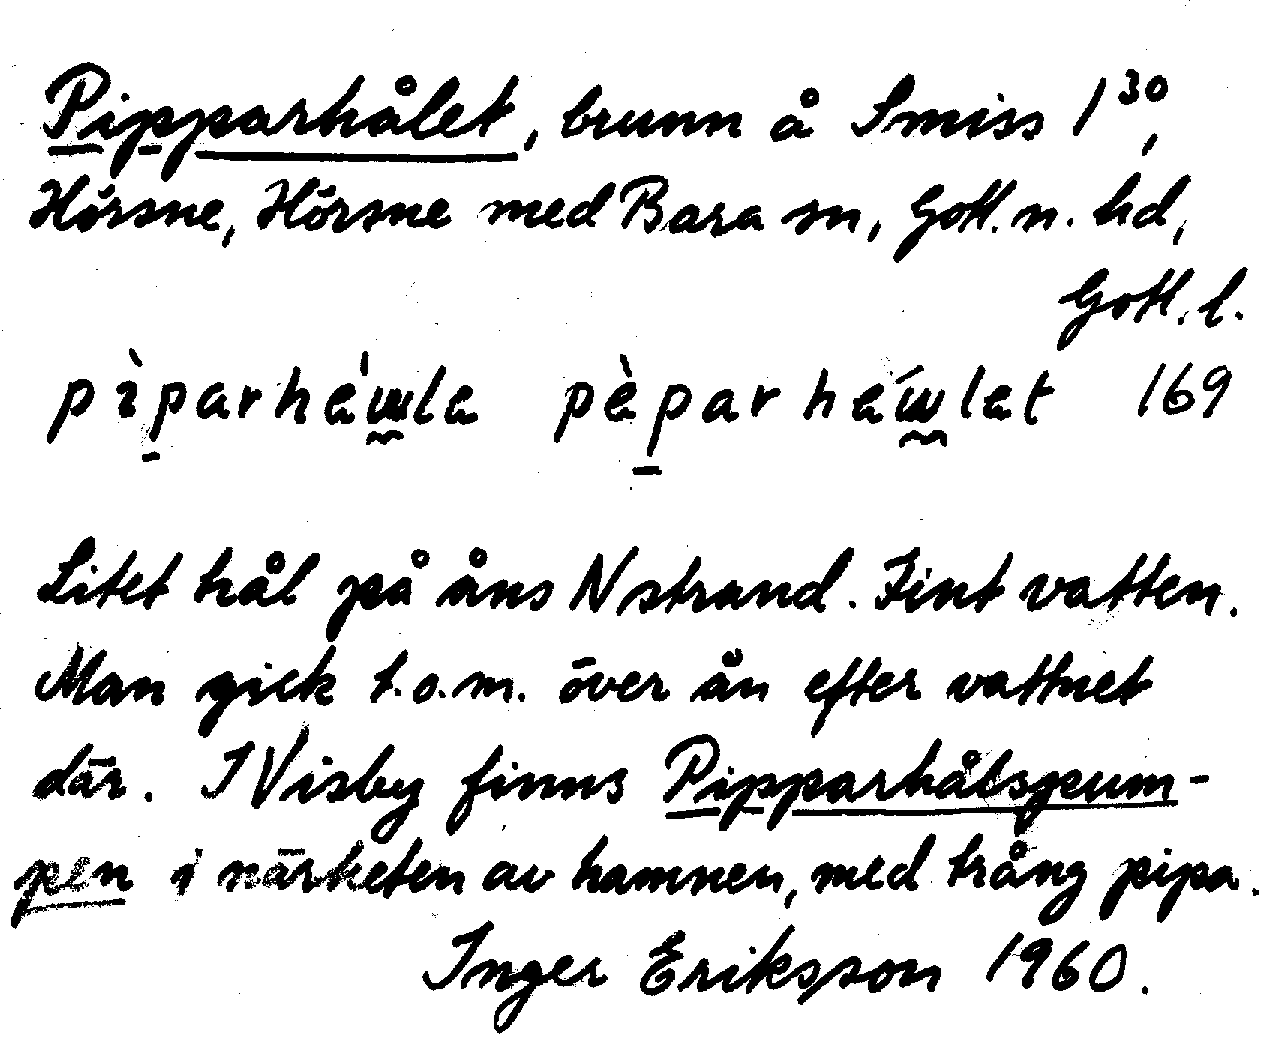 Pipparhålet, brunn å Smiss 1³⁰,
Hörsne, Hörsne med Bara sn, Gotl. n. hd,
Gotl. l.
169
Litet hål på åns N strand. Fint vatten.
Man gick t.o.m. över ån efter vattnet
där. I Visby finns Pipparhålspum-
pen i närheten av hamnen, med trång pipa.
Inger Eriksson 1960.